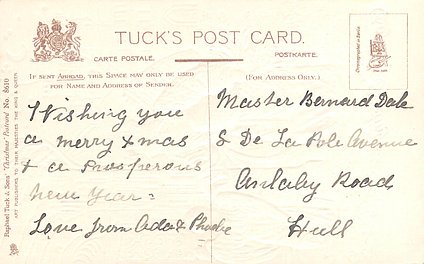 TUCK'S POST CARD.
CARTE POSTALE.
POSTKARTE.
IF SENT ABROAD, THIS SPACE MAY ONLY BE USED
FOR NAME AND ADDRESS OF SENDER.
(FOR ADDRESS ONLY.)
Wishing you
a merry xmas
& a Prosperous
New Year =
Love from Ada & Phoebe
Master Bernard Dale
De La Pole Avenue
Anlaby Road
Hull
Raphael Tuck & Sons' "Christmas" Postcard No. 8610
ART PUBLISHERS TO THEIR MAJESTIES THE KING & QUEEN.